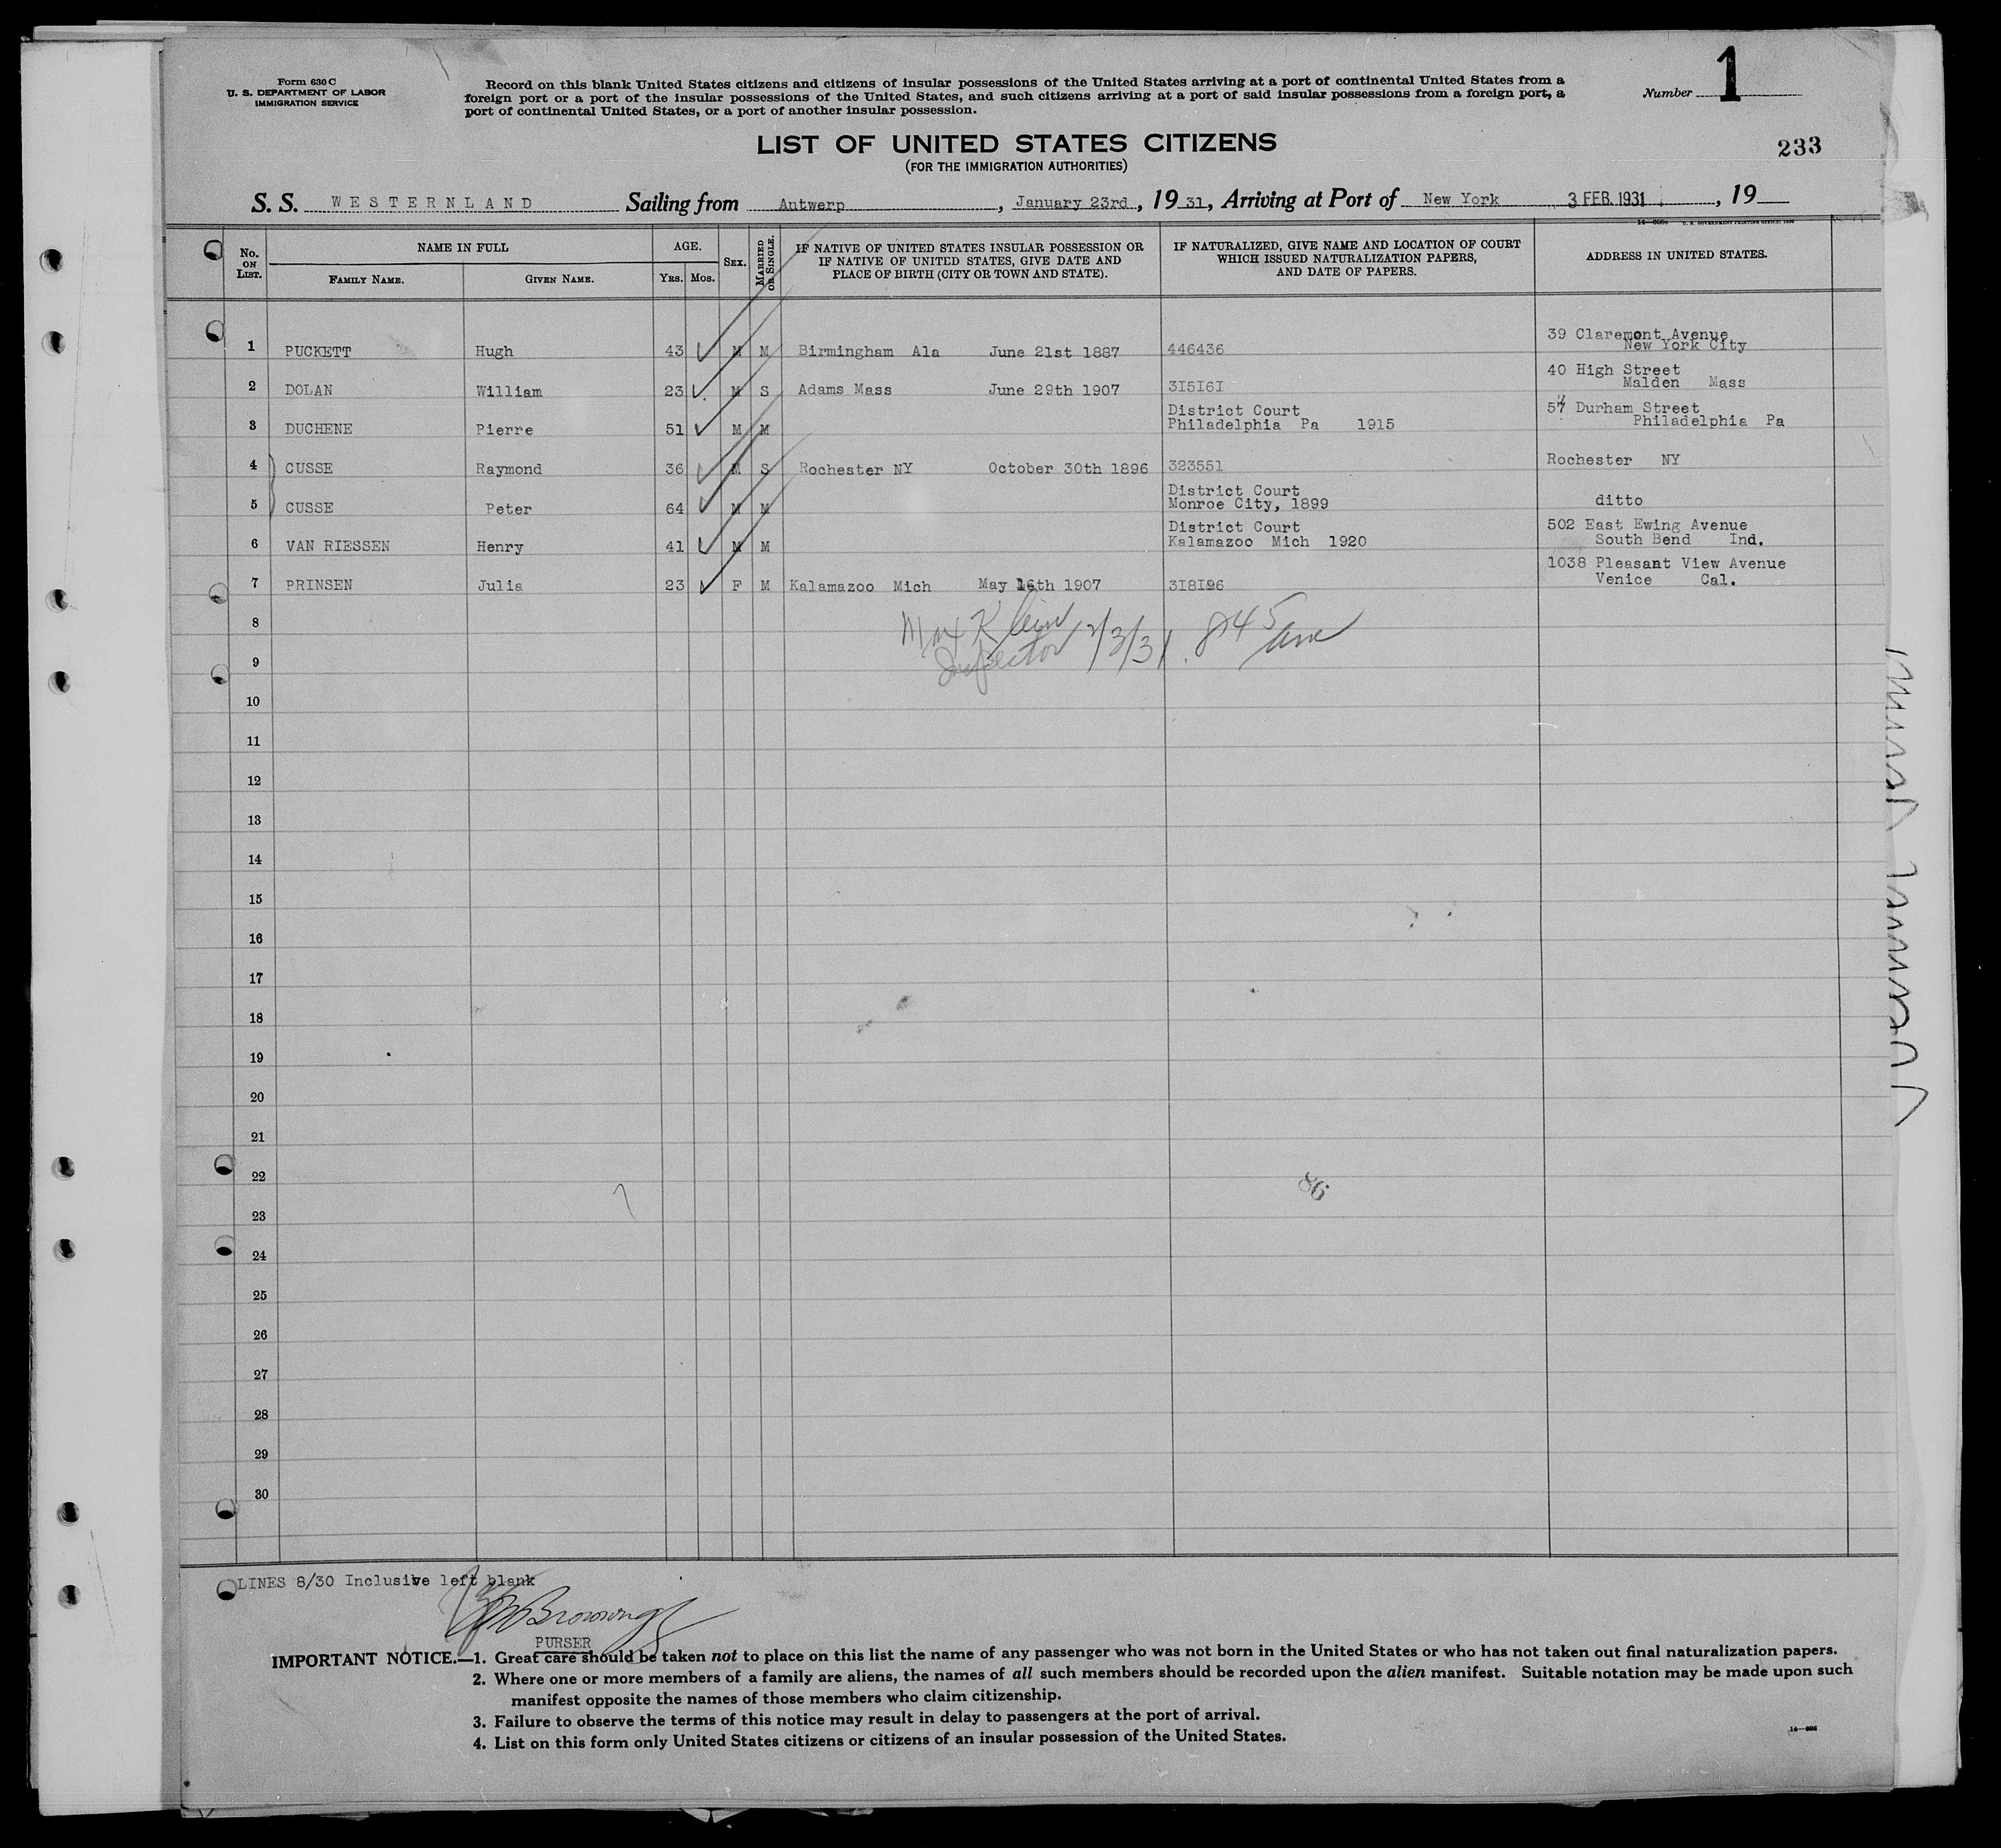 Form 630 C
U. S. DEPARTMENT OF LABOR
IMMIGRATION SERVICE
Record on this blank United States citizens and citizens of insular possessions of the United States arriving at a port of continental United States from a
foreign port or a port of the insular possessions of the United States, and such citizens arriving at a port of said insular possessions from a foreign port, a
port of continental United States, or a port of another insular possession.
Number 1
LIST OF UNITED STATES CITIZENS
(FOR THE IMMIGRATION AUTHORITIES)
233
S. S. WESTERNLAND Sailing from Antwerp, January 23rd, 1931, Arriving at Port of New York 3 FEB. 1931, 19
No. ON LIST. NAME IN FULL FAMILY NAME. GIVEN NAME. AGE. Yrs. Mos. SEX. MARRIED OR SINGLE. IF NATIVE OF UNITED STATES INSULAR POSSESSION OR IF NATIVE OF UNITED STATES, GIVE DATE AND PLACE OF BIRTH (CITY OR TOWN AND STATE). IF NATURALIZED, GIVE NAME AND LOCATION OF COURT WHICH ISSUED NATURALIZATION PAPERS, AND DATE OF PAPERS. ADDRESS IN UNITED STATES.
39 Claremont Avenue
1 PUCKETT Hugh 43 M M Birmingham Ala June 21st 1887 446436 New York City
40 High Street
2 DOLAN William 23 M S Adams Mass June 29th 1907 3I5I6I Malden Mass
District Court Durham Street
3 DUCHENE Pierre 51 M M Philadelphia Pa 1915 Philadelphia Pa
4 CUSSE Raymond 36 M S Rochester NY October 30th 1896 323551 Rochester NY
District Court
5 CUSSE Peter 64 M M Monroe City, 1899 ditto
District Court 502 East Ewing Avenue
6 VAN RIESSEN Henry 41 M M Kalamazoo Mich 1920 South Bend Ind.
1038 Pleasant View Avenue
7 PRINSEN Julia 23 F M Kalamazoo Mich May 16th 1907 3I8I96 Venice Cal.
8 Max Klein
9 Inspector 2/3/31. 845 am
10
11
12
13
14
15
16
17
18
19
20
21
22 86
23
24
25
26
27
28
29
30
LINES 8/30 Inclusive left blank
Browning
PURSER
IMPORTANT NOTICE.—1. Great care should be taken not to place on this list the name of any passenger who was not born in the United States or who has not taken out final naturalization papers.
2. Where one or more members of a family are aliens, the names of all such members should be recorded upon the alien manifest. Suitable notation may be made upon such
manifest opposite the names of those members who claim citizenship.
3. Failure to observe the terms of this notice may result in delay to passengers at the port of arrival.
4. List on this form only United States citizens or citizens of an insular possession of the United States.